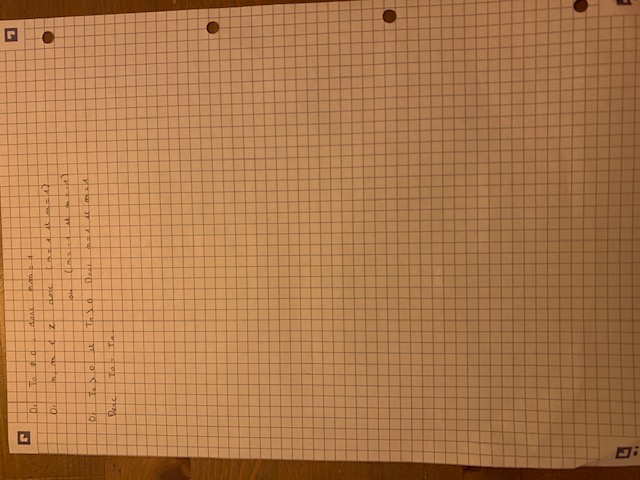 Or T₀ ≠ 0, donc nm = 1
Or n, m ∈ Z donc (n = 1 et m = 1)
ou (n = -1 et m = -1)
Or T₀ > 0 et T₁ > 0 Donc n = 1 et m = 1
Donc T₀ = T₁.